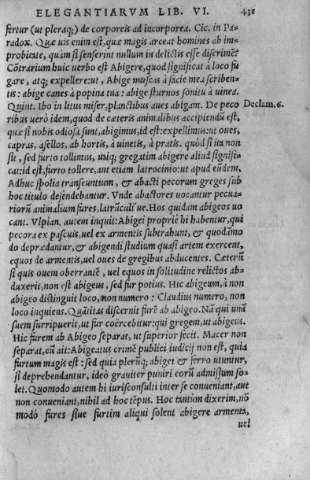 ELEGANTIARVM LIB. VI. 431
fertur (ut pleraq;) de corporeis ad incorporea. Cic. in Pa-
radox. Quæ uis enim est, quæ magis arceat homines ab im-
probitate, quàm si senserint nullum in delictis esse discrimẽ?
Cõtrarium huic uerbo est Abigere, quod significat à loco fu
gare, atq; expellere: ut, Abige muscas à facie mea scriben-
tis: abige canes à popina tua: abige sturnos sonitu à uinea.
Quint. Ibo in litus miser, planctibus aues abigam. De peco Declam. 6.
ribus uerò idem, quod de cæteris animalibus accipiendũ est,
quæ si nobis odiosa sunt, abigimus, id est: expellimus: ut oues,
capras, asellos, ab hortis, à uinetis, à pratis. quòd si ita non
sit, sed furto tollimus, uniq; gregatim abigere aliud signifi-
cat: id est, furto tollere, aut etiam latrocinio: ut apud eũdem,
Adhuc spolia transeuntium, & abacti pecorum greges sub
hoc titulo defendebantur. Vnde abactores uocantur pecua-
riorũ animalium fures, latrũculi'ue. Hos quidam abigeos uo
cant. Vlpian. autem inquit: Abigei propriè hi habentur, qui
pecora ex pascuis, uel ex armentis subtrahunt, & quodãmo
do deprædantur, & abigendi studium quasi artem exercent,
equos de armentis, uel oues de gregibus abducentes. Cæterũ
si quis ouem oberrantẽ, uel equos in solitudine relictos ab-
duxerit, non est abigeus, sed fur potius. Hic abigeum, à non
abigeo distinguit loco, non numero: Claudius numero, non
loco inquiens. Quãtitas discernit furẽ ab abigeo. Nã qui unũ
suem surripuerit, ut fur coërcebitur: qui gregem, ut abigeus.
Hic furem ab Abigeo separat, ut superior fecit. Macer non
separat, cũ ait: Abigeatus crimẽ publici iudicij non est, quia
furtum magis est: sed quia plerũq; abigei & ferro utuntur,
si deprehendantur, ideò grauiter puniri eorũ admissum so-
let. Quomodo autem hi iurisconsulti inter se conueniant, aut
non conueniant, nihil ad hoc tẽpus. Hoc tantùm dixerim, nõ
modò fures siue furtim aliqui solent abigere armenta,
uel